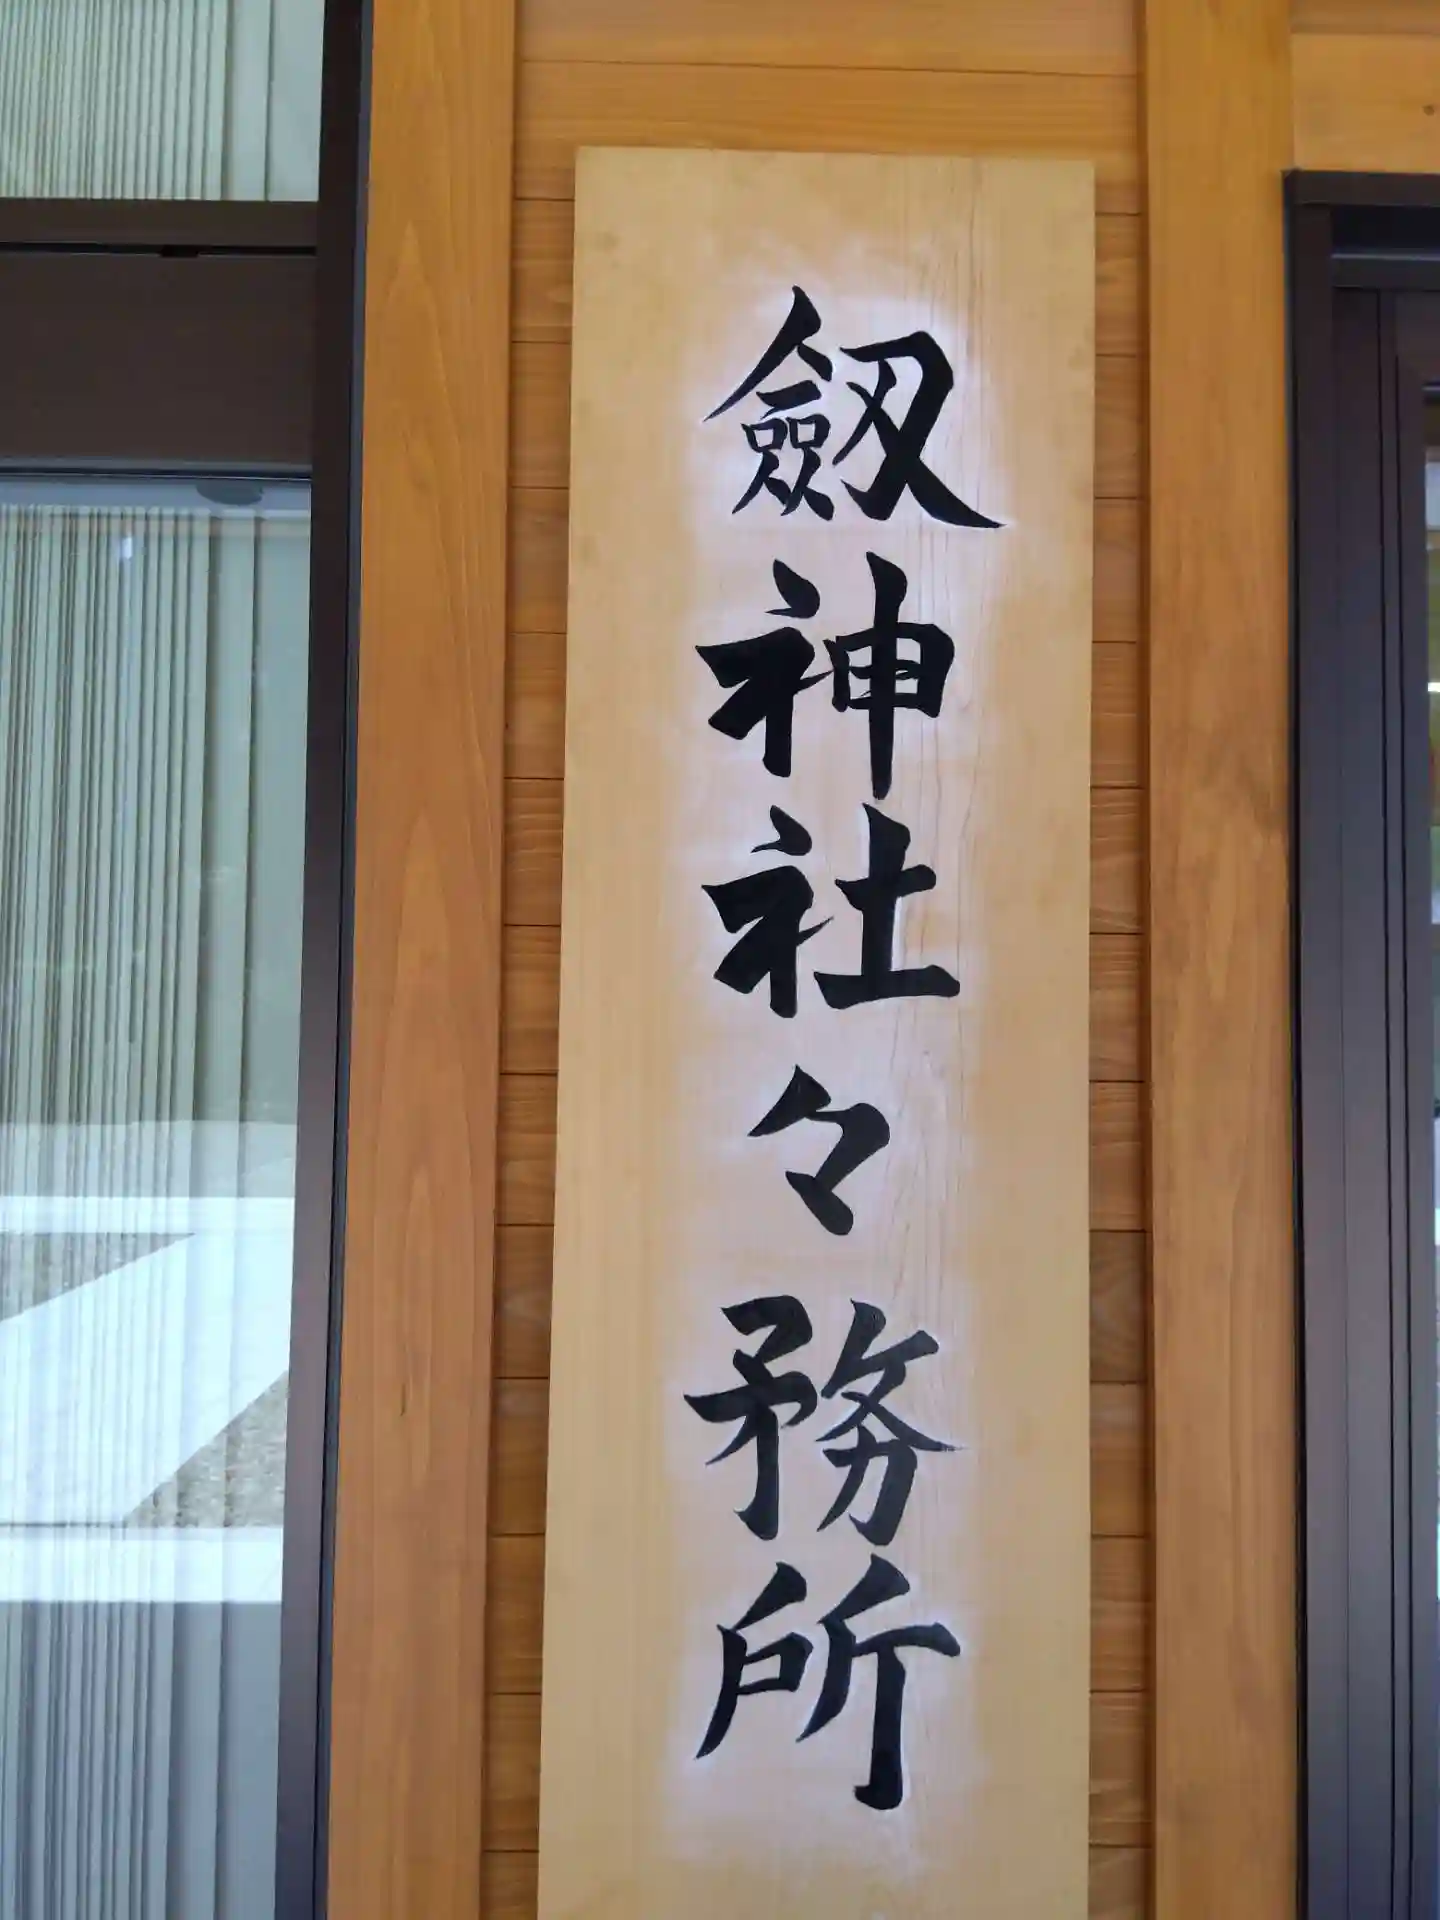 劔神社々務所